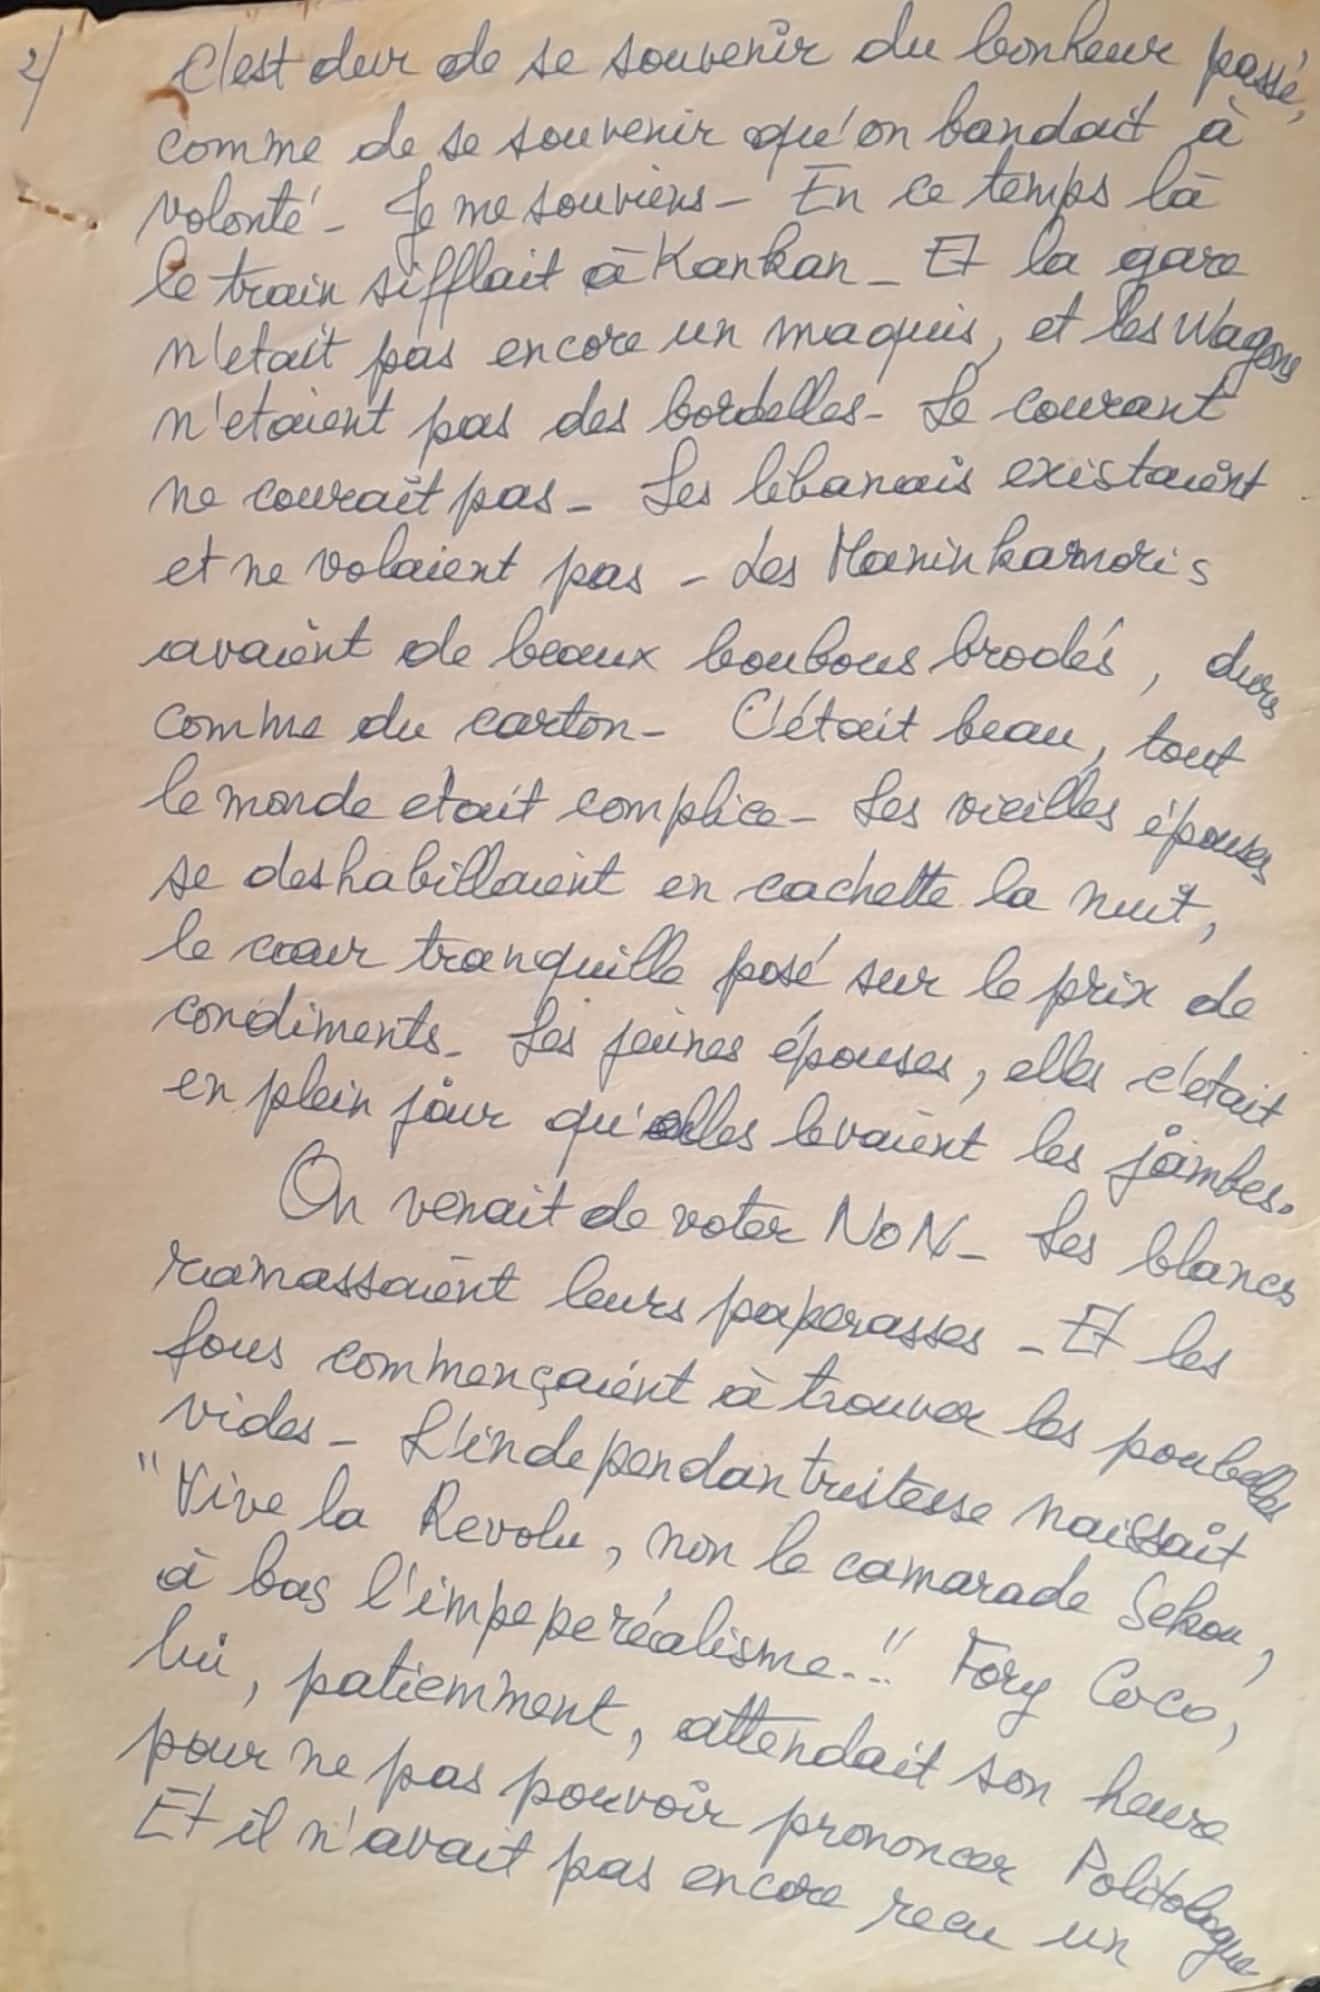 2/ C'est dur de se souvenir du bonheur passé,
comme de se souvenir qu'on bandait à
volonté - Je me souviens - En ce temps là
le train sifflait à Kankan - Et la gare
n'etait pas encore un maquis, et les Wagons
n'etaient pas des bordelles - Le courant
ne courait pas - Les libanais existaient
et ne volaient pas - Les Maninkamoris
avaient de beaux boubous brodés, durs
comme du carton - C'était beau, tout
le monde etait complice - Les vieilles épouses
se deshabillaient en cachette la nuit,
le cœur tranquille posé sur le prix de
condiments - Les jeunes épouses, elles c'etait
en plein jour qu'elles levaient les jambes.
On venait de voter NON - Les blancs
ramassaient leurs paperasses - Et les
fous commençaient à trouver les poubelles
vides - L'independantristesse naissait
"Vive la Revolu, non le camarade Sekou,
à bas l'impeperéalisme.!" Fory Coco,
lui, patiemment, attendait son heure
pour ne pas pouvoir prononcer Politologue
Et il n'avait pas encore recu un